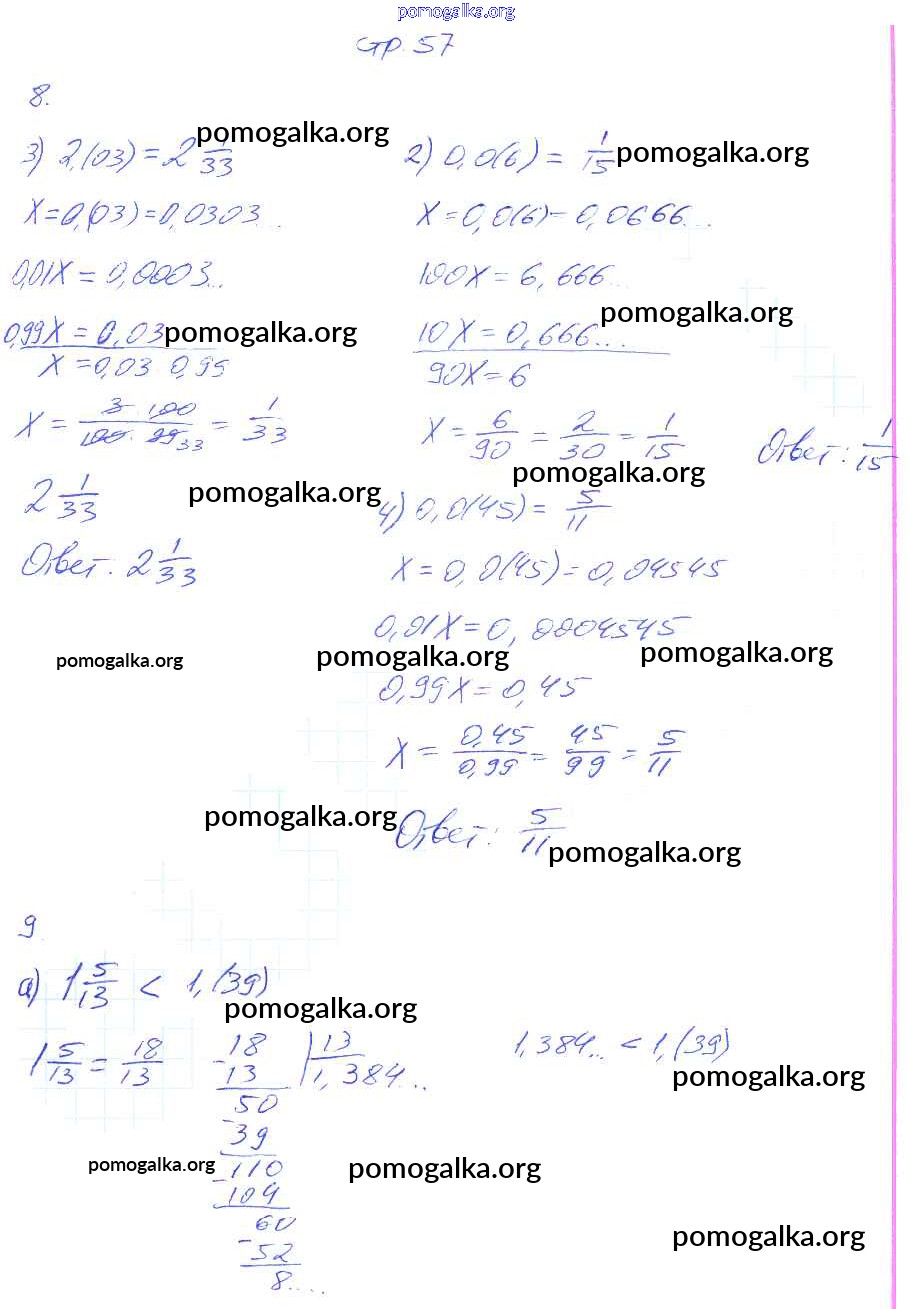 pomogalka.org
стр. 57
8.
3) 2,(03) = 2 1/33
pomogalka.org
X = 0,(03) = 0,0303...
0,01X = 0,0003...
0,99X = 0,03
pomogalka.org
X = 0,03 0,99
X = 3·100/100·99 33 = 1/33
2 1/33
pomogalka.org
Ответ: 2 1/33
pomogalka.org
2) 0,0(6) = 1/15
pomogalka.org
X = 0,0(6) = 0,0666...
100X = 6,666...
pomogalka.org
10X = 0,666...
90X = 6
X = 6/90 = 2/30 = 1/15
Ответ: 1/15
pomogalka.org
4) 0,0(45) = 5/11
X = 0,0(45) = 0,04545
0,01X = 0,0004545
pomogalka.org
pomogalka.org
0,99X = 0,45
X = 0,45/0,99 = 45/99 = 5/11
pomogalka.org
Ответ: 5/11
pomogalka.org
9.
а) 1 5/13 < 1,(39)
pomogalka.org
1 5/13 = 18/13
18 | 13
- 13 | 1,384...
50
- 39
110
- 104
60
- 52
8...
1,384... < 1,(39)
pomogalka.org
pomogalka.org
pomogalka.org
pomogalka.org